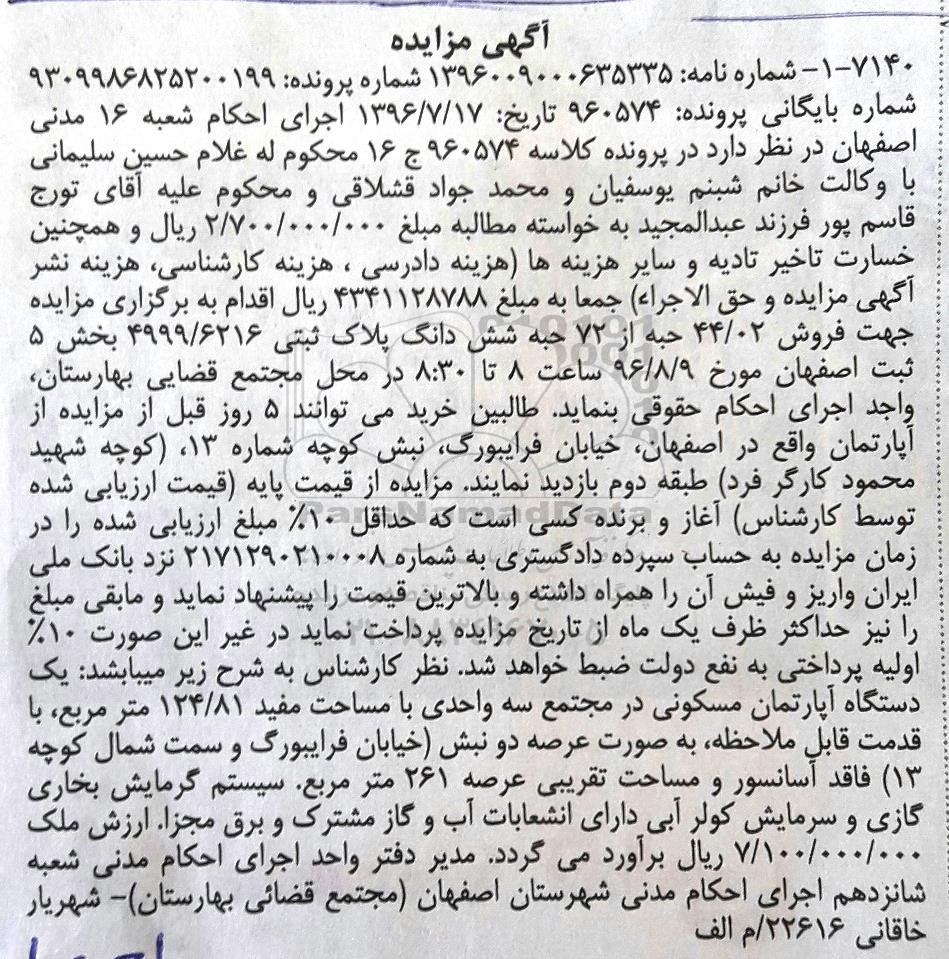 آگهی مزایده
۱-۷۱۴۰- شماره نامه: ۱۳۹۶۰۰۹۰۰۰۶۳۵۳۳۵ شماره پرونده: ۹۳۰۹۹۸۶۸۲۵۲۰۰۱۹۹
شماره بایگانی پرونده: ۹۶۰۵۷۴ تاریخ: ۱۳۹۶/۷/۱۷ اجرای احکام شعبه ۱۶ مدنی
اصفهان در نظر دارد در پرونده کلاسه ۹۶۰۵۷۴ج ۱۶ محکوم له غلام حسین سلیمانی
با وکالت خانم شبنم یوسفیان و محمد جواد قشلاقی و محکوم علیه آقای تورج
قاسم پور فرزند عبدالمجید به خواسته مطالبه مبلغ ۲/۷۰۰/۰۰۰/۰۰۰ ریال و همچنین
خسارت تاخیر تادیه و سایر هزینه ها (هزینه دادرسی ، هزینه کارشناسی، هزینه نشر
آگهی مزایده و حق الاجراء) جمعا به مبلغ ۴۳۴۱۱۲۸۷۸۸ ریال اقدام به برگزاری مزایده
جهت فروش ۴۴/۰۲ حبه از ۷۲ حبه شش دانگ پلاک ثبتی ۴۹۹۹/۶۲۱۶ بخش ۵
ثبت اصفهان مورخ ۹۶/۸/۹ ساعت ۸ تا ۸:۳۰ در محل مجتمع قضایی بهارستان،
واجد اجرای احکام حقوقی بنماید. طالبین خرید می توانند ۵ روز قبل از مزایده از
آپارتمان واقع در اصفهان، خیابان فرایبورگ، نبش کوچه شماره ۱۳، (کوچه شهید
محمود کارگر فرد) طبقه دوم بازدید نمایند. مزایده از قیمت پایه (قیمت ارزیابی شده
توسط کارشناس) آغاز و برنده کسی است که حداقل ۱۰٪ مبلغ ارزیابی شده را در
زمان مزایده به حساب سپرده دادگستری به شماره ۲۱۷۱۲۹۰۲۱۰۰۰۸ نزد بانک ملی
ایران واریز و فیش آن را همراه داشته و بالاترین قیمت را پیشنهاد نماید و مابقی مبلغ
را نیز حداکثر ظرف یک ماه از تاریخ مزایده پرداخت نماید در غیر این صورت ۱۰٪
اولیه پرداختی به نفع دولت ضبط خواهد شد. نظر کارشناس به شرح زیر میباشد: یک
دستگاه آپارتمان مسکونی در مجتمع سه واحدی با مساحت مفید ۱۲۴/۸۱ متر مربع، با
قدمت قابل ملاحظه، به صورت عرصه دو نبش (خیابان فرایبورگ و سمت شمال کوچه
۱۳) فاقد آسانسور و مساحت تقریبی عرصه ۲۶۱ متر مربع. سیستم گرمایش بخاری
گازی و سرمایش کولر آبی دارای انشعابات آب و گاز مشترک و برق مجزا. ارزش ملک
۷/۱۰۰/۰۰۰/۰۰۰ ریال برآورد می گردد. مدیر دفتر واحد اجرای احکام مدنی شعبه
شانزدهم اجرای احکام مدنی شهرستان اصفهان (مجتمع قضائی بهارستان)- شهریار
خاقانی ۲۲۶۱۶/م الف